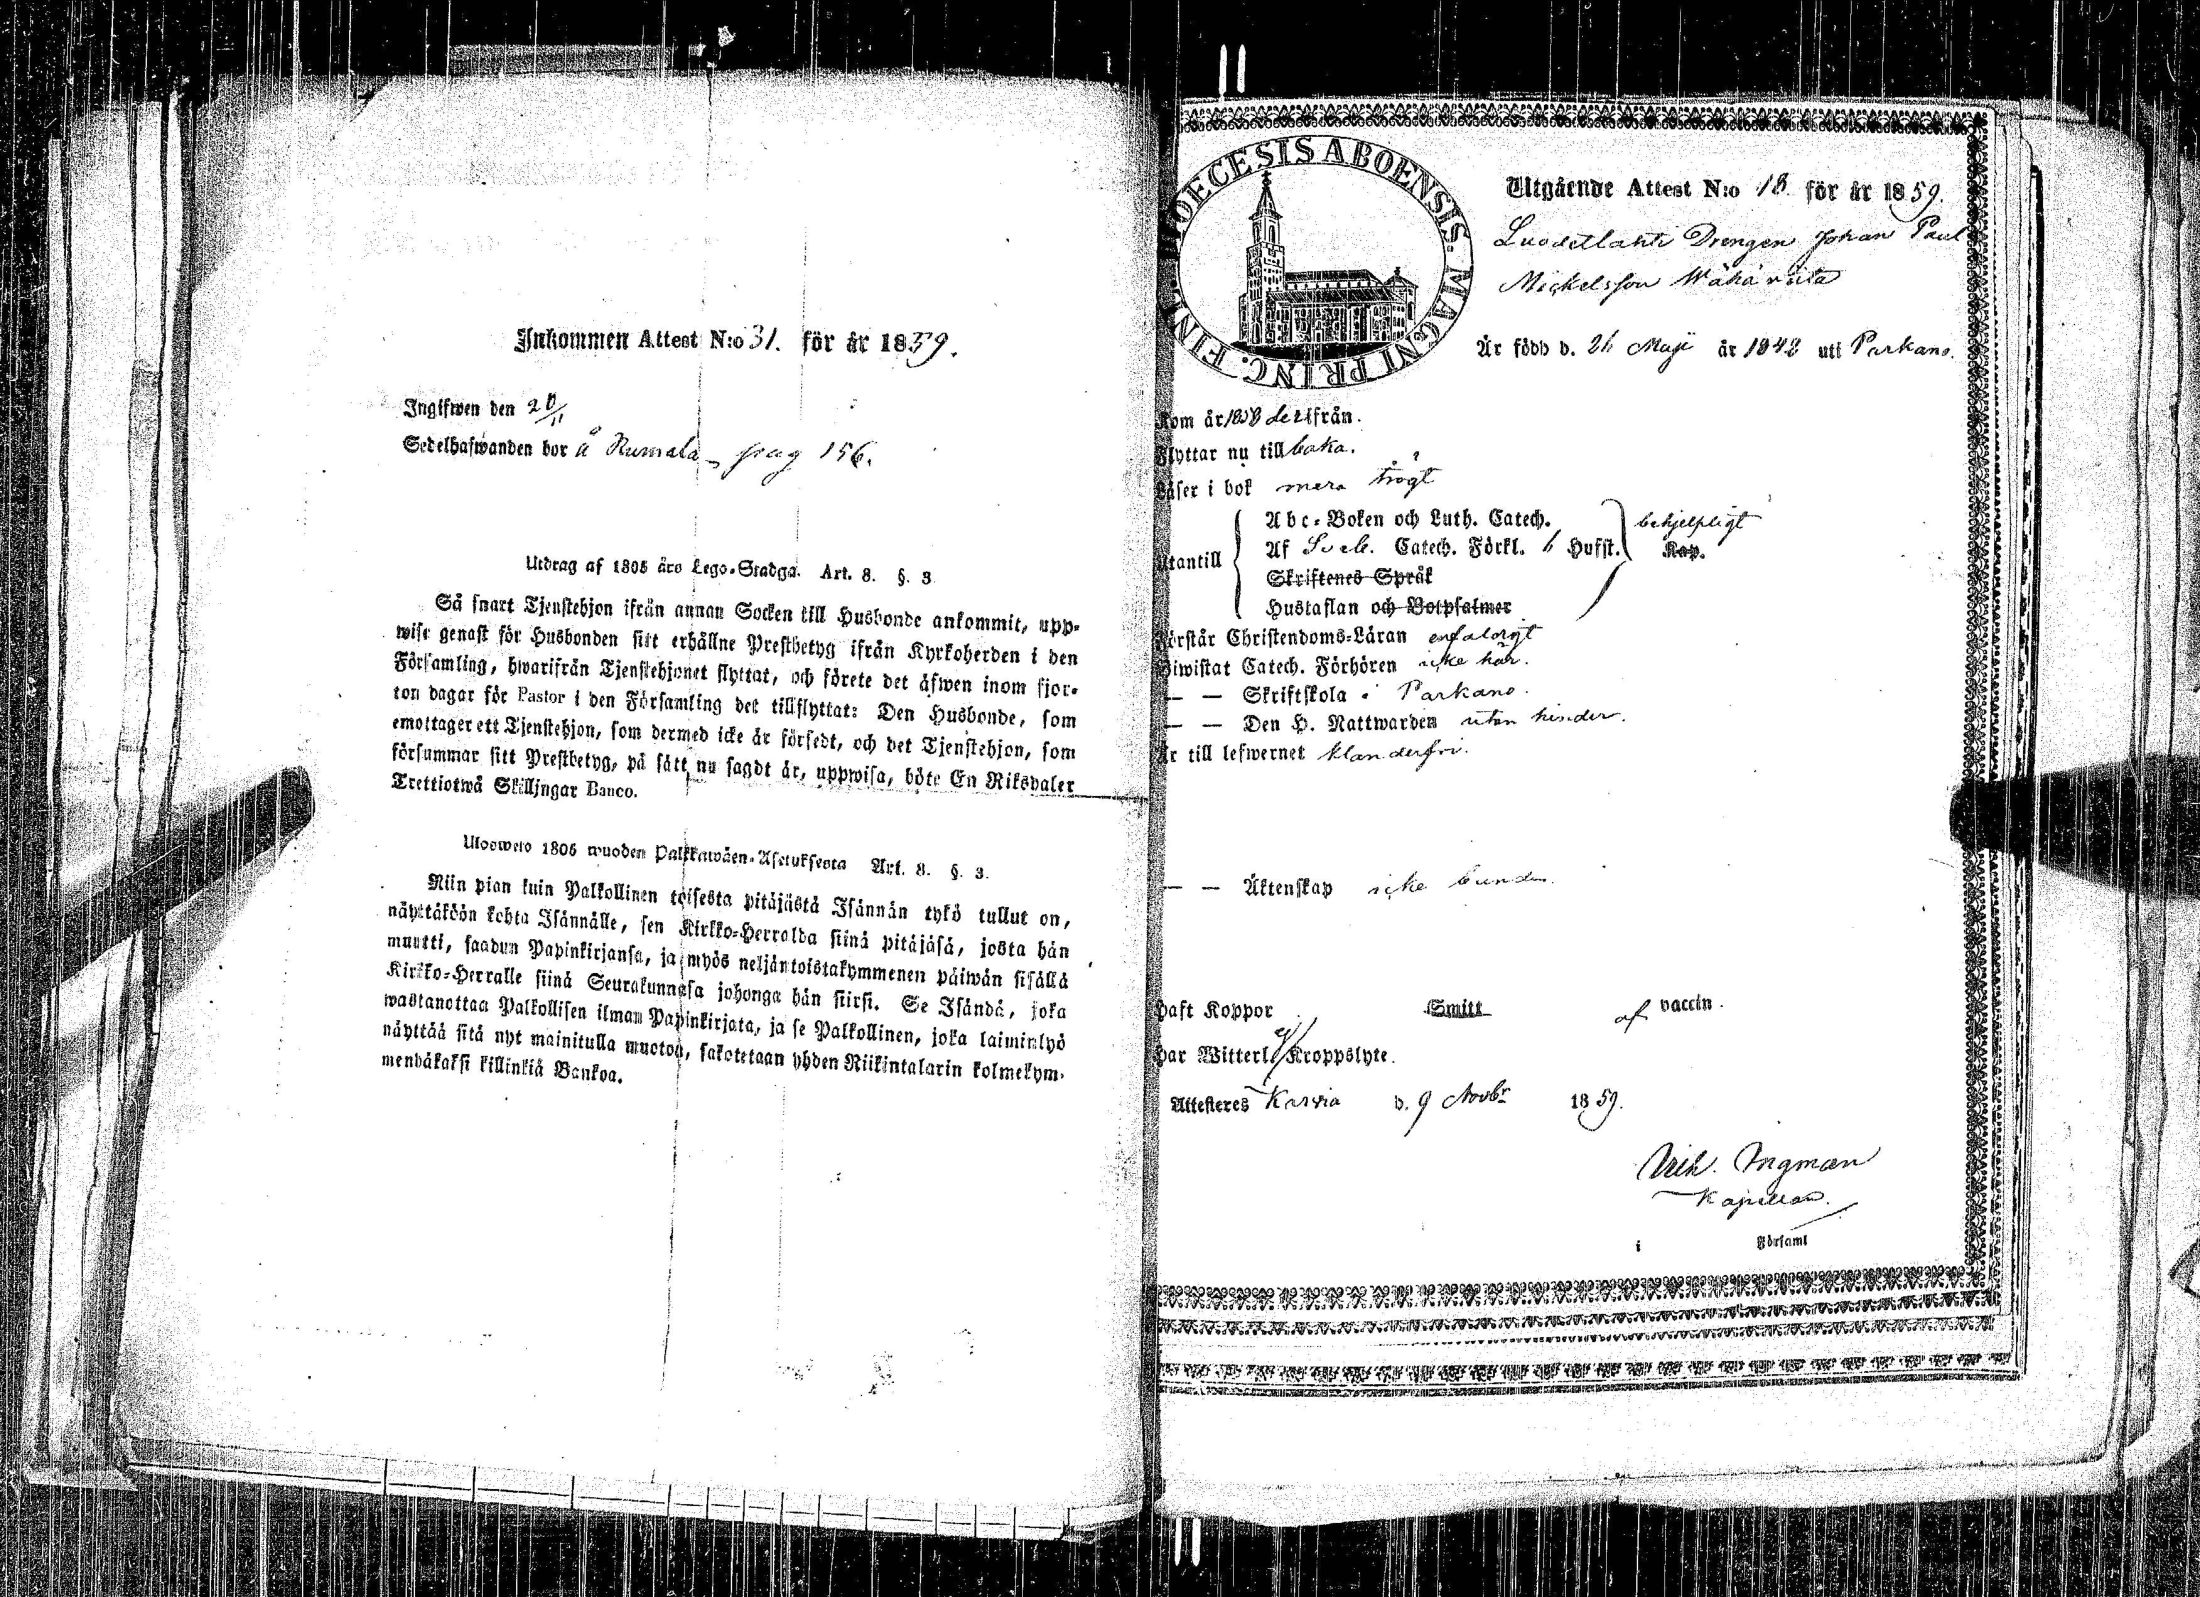 Inkommen Attest N:o 31. för år 1859.
Ingifwen den 20/11
Sedelhafwanden bor å Rumala pag 156.
Utdrag af 1805 års Lego-Stadga. Art. 8. §. 3
Så snart Tjenstehjon ifrån annan Socken till Husbonde ankommit, upp-
wise genast för Husbonden sitt erhållne Prestbetyg ifrån Kyrkoherden i den
Församling, hwarifrån Tjenstehjonet flyttat, och förete det äfwen inom fjor-
ton dagar för Pastor i den Församling det tillflyttat: Den Husbonde, som
emottager ett Tjenstehjon, som dermed icke är försedt, och det Tjenstehjon, som
försummar sitt Prestbetyg, på sätt nu sagdt är, uppwisa, böte En Riksdaler
Trettiotwå Skillingar Banco.
Ulosweto 1805 wuoden Palkkawäen-Asetuksesta Art. 8. §. 3.
Niin pian kuin Palkollinen toisesta pitäjästä Isännän tykö tullut on,
näyttäköön kohta Isännälle, sen Kirkko-Herralda siinä pitäjäsä, josta hän
muutti, saadun Papinkirjansa, ja myös neljäntoistakymmenen päiwän sisällä
Kirkko-Herralle siinä Seurakunnasa johonga hän siirsi. Se Isändä, joka
wastanottaa Palkollisen ilman Papinkirjata, ja se Palkollinen, joka laiminlyö
näyttää sitä nyt mainitulla muotoa, sakotetaan yhden Riikintalarin kolmekym-
mendäkaksi killinkiä Bankoa.
DIOECESIS ABOENSIS. MAGNI PRINC. FINL.
Utgående Attest N:o 18 för år 1859.
Luodetlahti Drengen Johan Paul
Mickelsson Wähäriita
Är född d. 26 Maji år 1842 uti Parkano.
Kom år 1858 derifrån.
Flyttar nu tillbaka.
Läser i bok mera trögt
Abc-Boken och Luth. Catech. behjelpligt
Utantill Af Sveb. Catech. Förkl. 6 Hufst. Kap.
Skriftenes Språk
Hustaflan och Botpsalmer
Förstår Christendoms-Läran enfaldigt
Biwistat Catech. Förhören icke här.
— — Skriftskola i Parkano.
— — Den H. Nattwarden utan hinder.
Är till lefwernet klanderfri.
— — Äktenskap icke bunden.
Haft Koppor Smitt af vaccin.
Har Witterl. ej Kroppslyte.
Attesteres Karvia d. 9 Novbr 1859.
Ingman
Kapellan.
i Församl